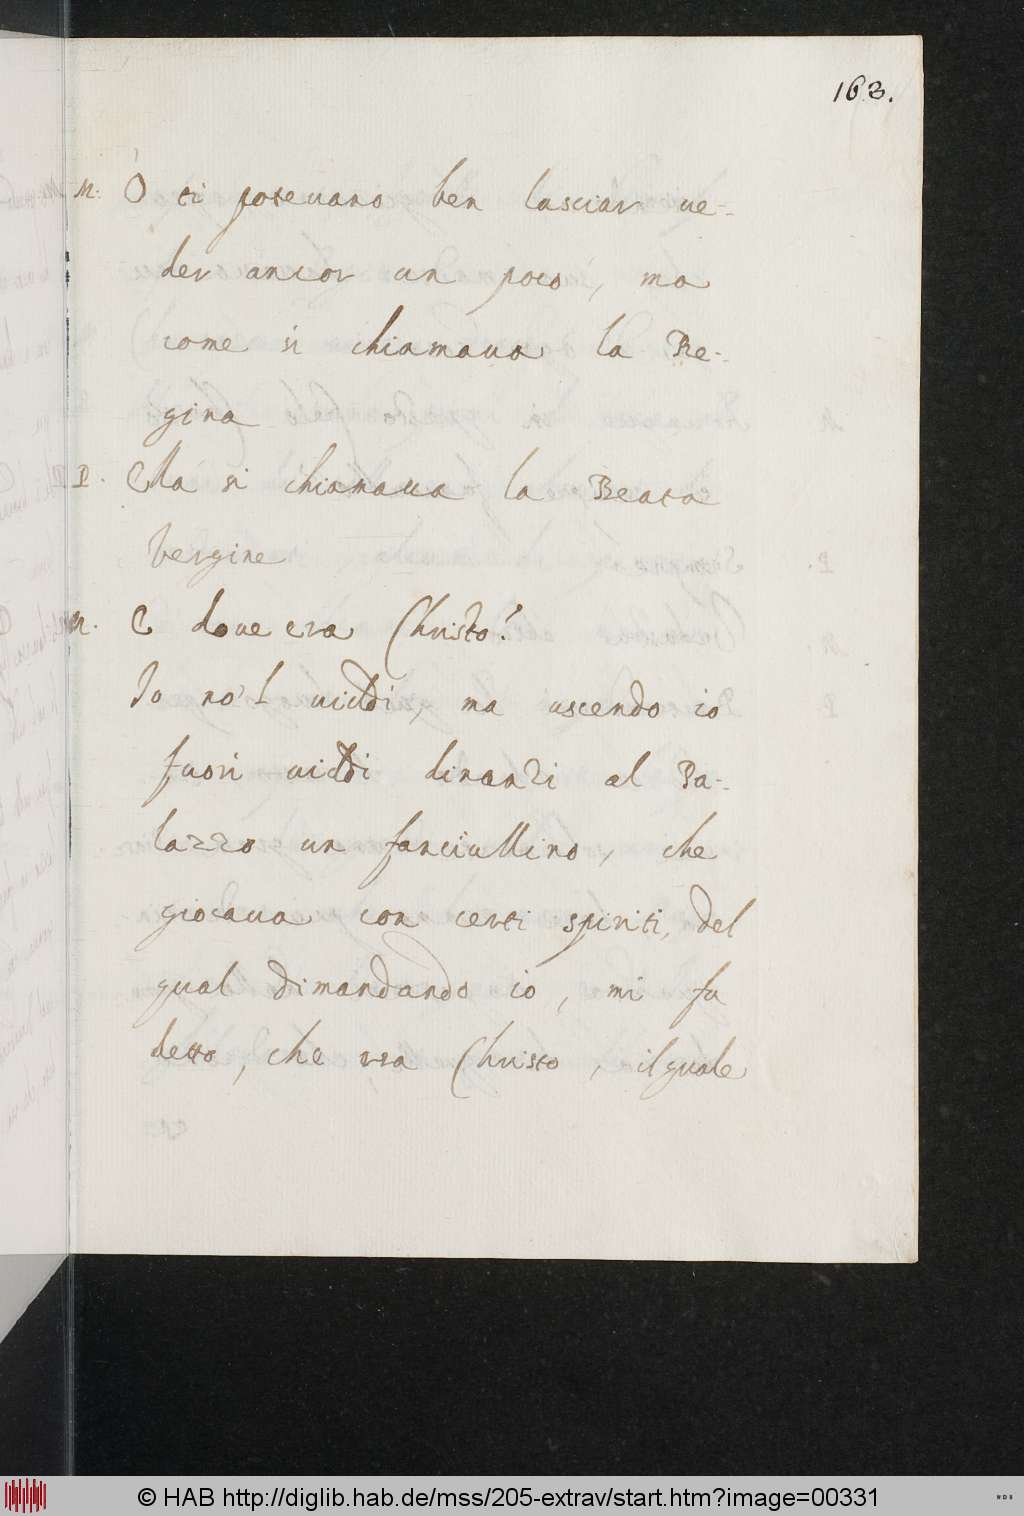 163.
M: O ti poteuano ben lasciar ue-
der ancor un poco, ma
come si chiamaua la Re-
gina
P. Ella si chiamaua la Beata
Vergine
M. E doue era Christo?
Io no'l uiddi, ma uscendo io
fuori uiddi dinanzi al Pa-
lazzo un fanciullino, che
giocaua con certi spiriti, del
qual dimandando io, mi fu
detto, che era Christo, ilquale
© HAB http://diglib.hab.de/mss/205-extrav/start.htm?image=00331